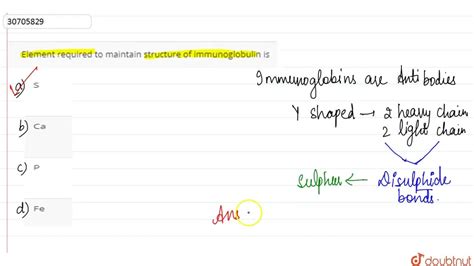 30705829
Element required to maintain structure of immunoglobulin is
a) S
b) Ca
c) P
d) Fe
Immunoglobins are Antibodies
Y shaped → 2 heavy chain
2 light chain
Sulpher ← Disulphide
bonds.
Ans
doubtnut